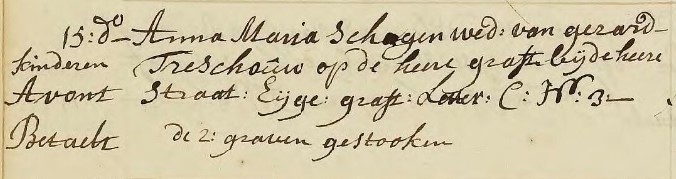 15: do Anna Maria Schagen wed: van gerard
kinderen Treschouw op de heere graft bijde heere
Avont Straat: Eijge: graft: Letter: C: No: 3
Betaelt de 2: graven gestooken